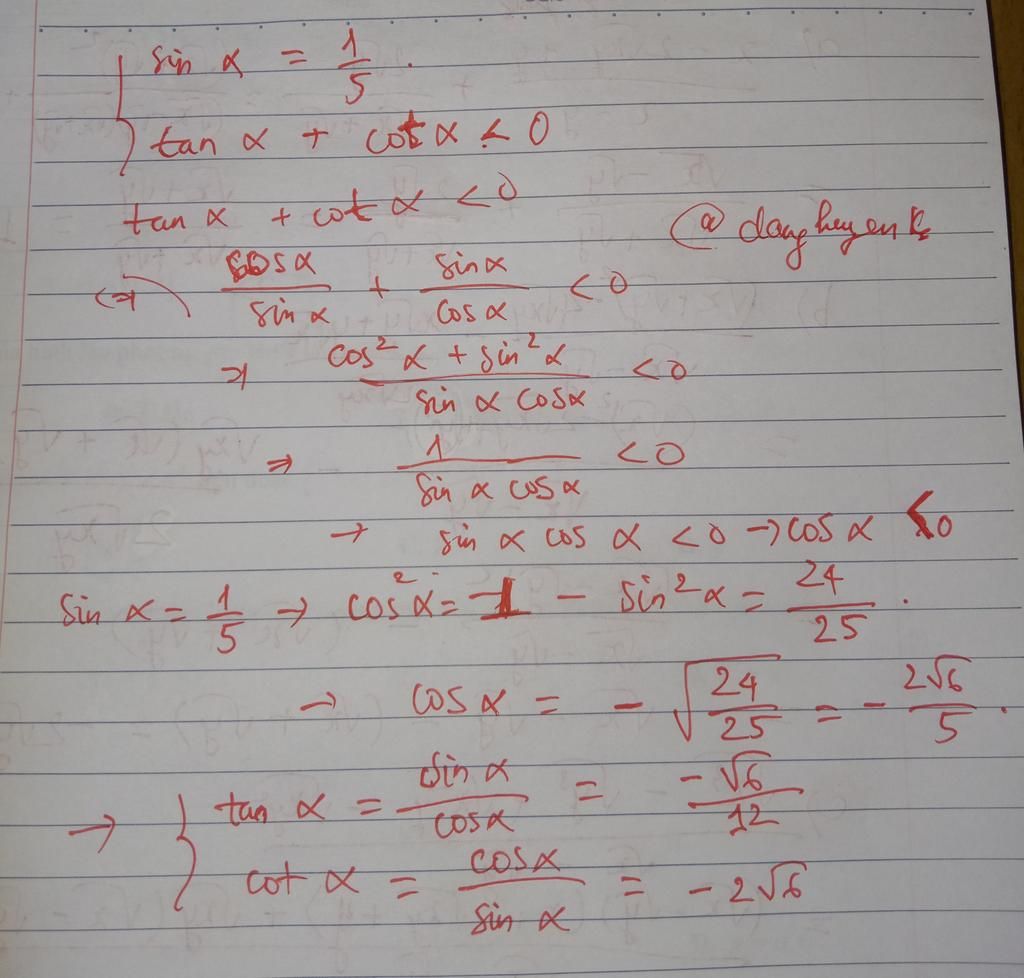 sin α = 1/5.
tan α + cot α < 0
tan α + cot α < 0
@ danghuyenk
<=> cosα/sin α + sinα/cosα < 0
=> (cos² α + sin² α)/(sin α cosα) < 0
=> 1/(sin α cosα) < 0
→ sin α cos α < 0 → cos α < 0
sin α = 1/5 → cos² α = 1 - sin² α = 24/25.
→ cos α = - √(24/25) = - 2√6/5.
→ { tan α = sin α/cosα = -√6/12
cot α = cosα/sin α = - 2√6